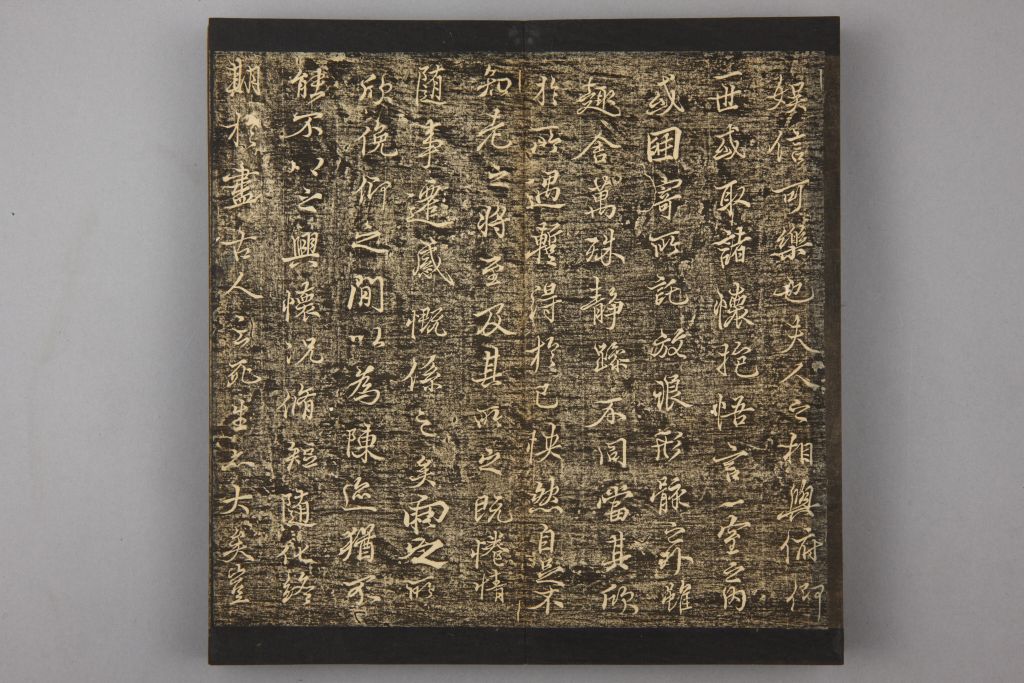 娛信可樂也夫人之相與俯仰
一世或取諸懷抱悟言一室之內
或因寄所託放浪形骸之外雖
趣舍萬殊静躁不同當其欣
於所遇暫得於己怏然自足不
知老之將至及其所之既惓情
随事遷感慨係之矣向之所
欣俛仰之間以為陳迹猶不
能不以之興懷況脩短随化終
期於盡古人云死生亦大矣豈